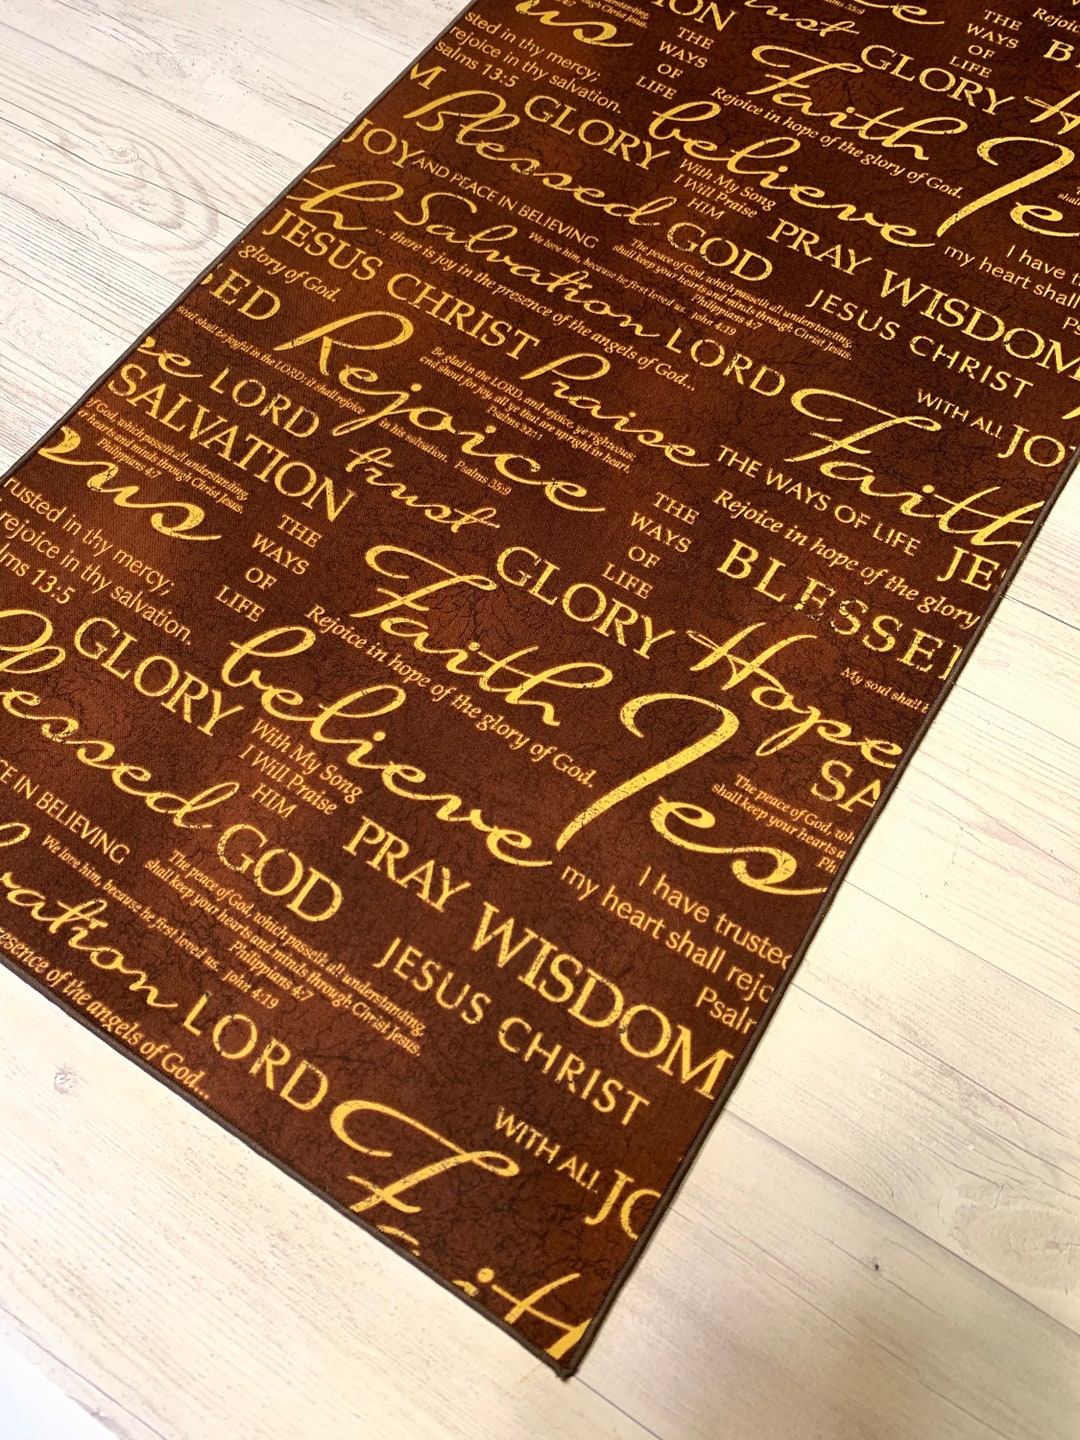 TION
THE
WAYS
OF
LIFE
THE
WAYS
OF
LIFE
GLORY
Faith
Rejoice in hope of the glory of God.
sted in thy mercy;
rejoice in thy salvation.
salms 13:5
GLORY
believe
Blessed
With My Song
I Will Praise
HIM
GOD
PRAY
WISDOM
my heart shall
I have t
JOY
AND PEACE IN BELIEVING
We love him, because he first loved us. John 4:19
The peace of God, which passeth all understanding,
shall keep your hearts and minds through Christ Jesus.
Philippians 4:7
JESUS CHRIST
Salvation
... there is joy in the presence of the angels of God...
LORD
Faith
WITH ALL
JO
JESUS CHRIST
Praise
glory of God.
Rejoice
Be glad in the LORD, and rejoice ye righteous:
and shout for joy, all ye that are upright in heart.
Psalms 32:11
THE WAYS OF LIFE
soul shall be joyful in the LORD: it shall rejoice
in his salvation. Psalms 35:9
LORD
trust
SALVATION
God, which passeth all understanding,
r hearts and minds through Christ Jesus.
Philippians 4:7
us
THE
WAYS
OF
LIFE
THE
WAYS
OF
LIFE
Rejoice in hope of the glory
BLESSED
JE
rusted in thy mercy;
rejoice in thy salvation.
alms 13:5
Faith
GLORY
Hope
My soul shall b
Rejoice in hope of the glory of God.
SA
GLORY
believe
Jes
The peace of God, wh
shall keep your hearts a
Ph
lessed
With My Song
I Will Praise
HIM
GOD
PRAY
WISDOM
I have trusted
my heart shall rejo
Psalm
CE IN BELIEVING
We love him, because he first loved us. John 4:19
The peace of God, which passeth all understanding,
shall keep your hearts and minds through Christ Jesus.
Philippians 4:7
JESUS CHRIST
vation
resence of the angels of God...
LORD
Faith
WITH ALL
JO